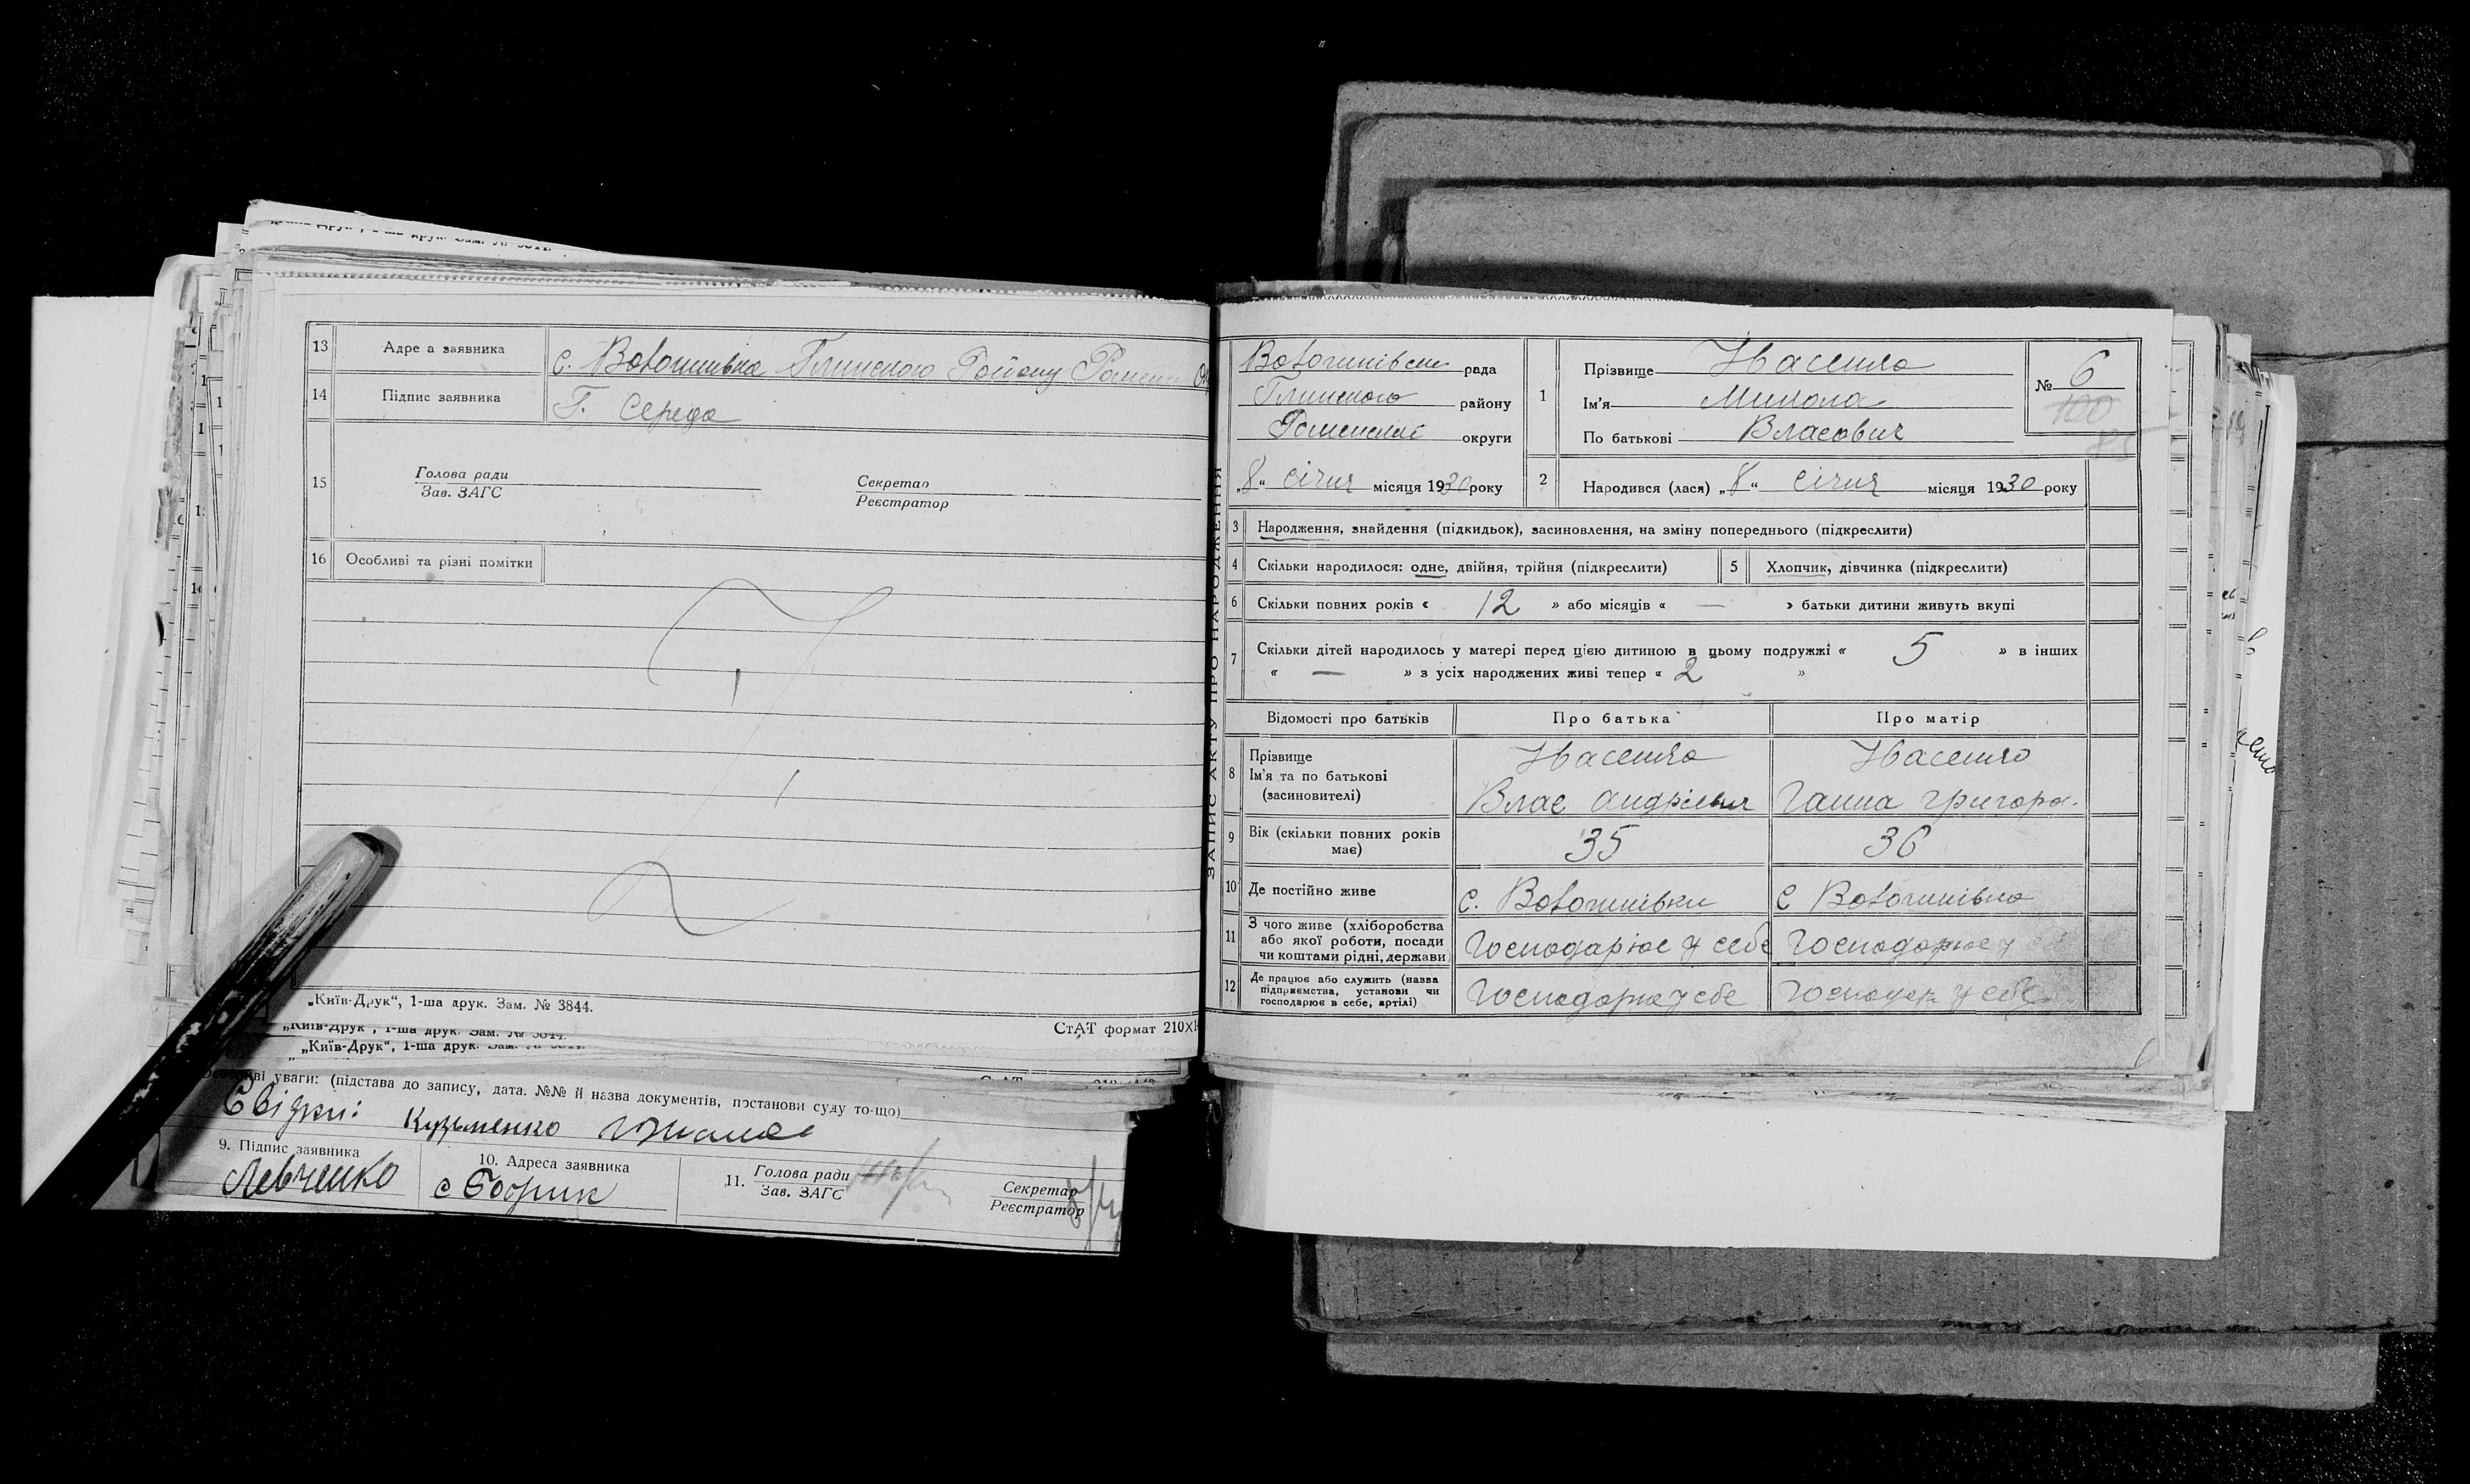 13 Адре а заявника с. Волошнівка Глинського Району Ромен
14 Підпис заявника Г. Середа
15 Голова ради
Зав. ЗАГС
Секретар
Реєстратор
16 Особливі та різні помітки
„Київ-Друк“, 1-ша друк. Зам. № 3844.
СтАТ формат 210X
„Київ-Друк“, 1-ша друк. Зам. № 3844.
„Київ-Друк“, 1-ша друк.
уваги: (підстава до запису, дата. №№ й назва документів, постанови суду то-що)
Свідки: Кузьменко
9. Підпис заявника
Левченко
10. Адреса заявника
с Бобрик
11. Голова ради
Зав. ЗАГС
Секретар
Реєстратор
ЗАПИС АКТУ ПРО НАРОДЖЕННЯ
Волошнівськ рада
Глинського району
Роменської округи
„8“ січня місяця 1930 року
1 Прізвище Насенко
Ім'я Микола
По батькові Власович
№ 6
100
2 Народився (лася) „8“ січня місяця 1930 року
3 Народження, знайдення (підкидьок), засиновлення, на зміну попереднього (підкреслити)
4 Скільки народилося: одне, двійня, трійня (підкреслити)
5 Хлопчик, дівчинка (підкреслити)
6 Скільки повних років « 12 » або місяців « — » батьки дитини живуть вкупі
7 Скільки дітей народилось у матері перед цією дитиною в цьому подружжі « 5 » в інших
« — » з усіх народжених живі тепер « 2 »
Відомості про батьків Про батька Про матір
8 Прізвище
Ім'я та по батькові
(засиновителі)
Насенко
Влас Андрієвич
Насенко
Ганна Григоро.
9 Вік (скільки повних років
має)
35 36
10 Де постійно живе с. Волошнівки с Волошнівка
11 З чого живе (хліборобства
або якої роботи, посади
чи коштами рідні, держави
Господарює у себе Господарює у
12 Де працює або служить (назва
підприємства, установи чи
господарює в себе, артілі)
Господарює у себе у себе